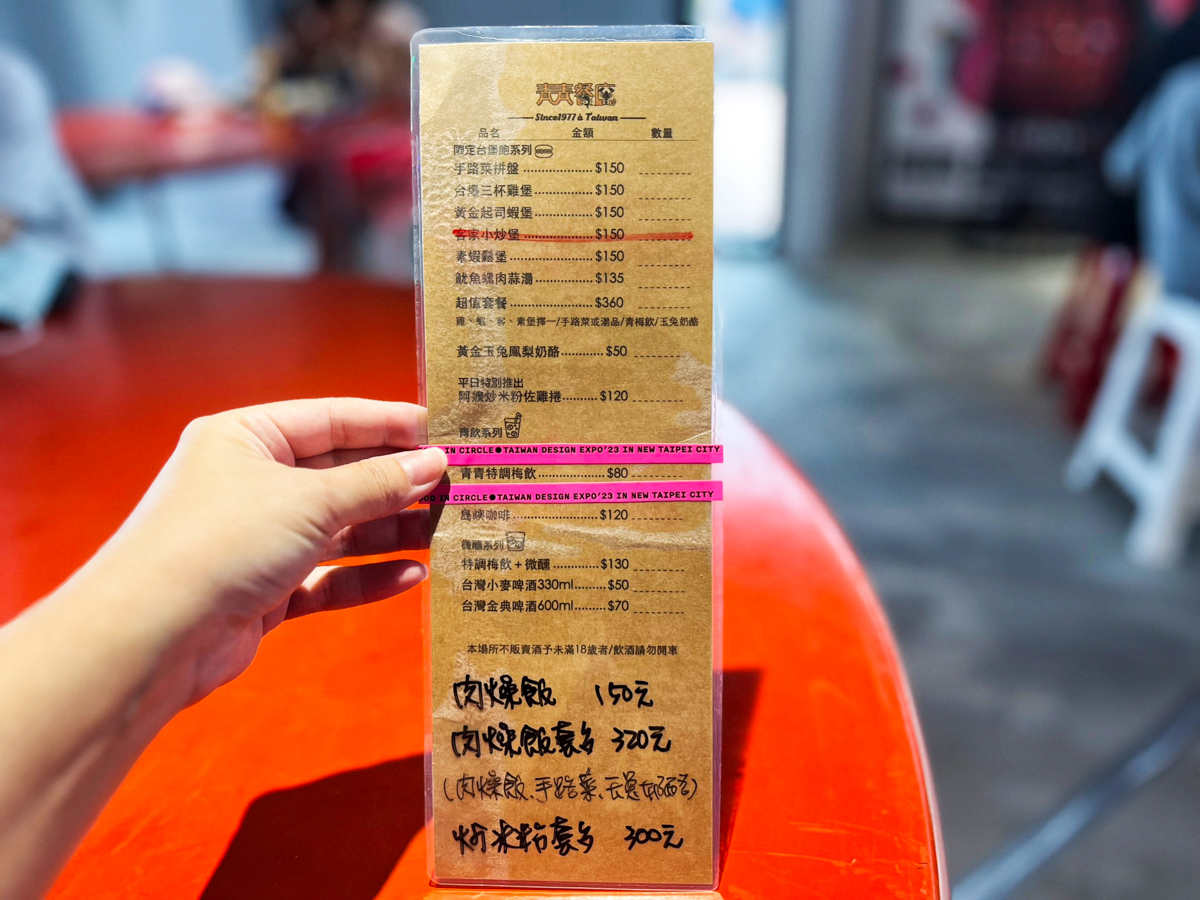 青青餐廳
Since1977 à Taiwan
品名 金額 數量
限定台堡飽系列
手路菜拼盤....................$150
台爆三杯雞堡..................$150
黃金起司蝦堡..................$150
客家小炒堡....................$150
素蝦鬆堡......................$150
魷魚螺肉蒜湯..................$135
超值套餐......................$360
雞、蝦、客、素堡擇一/手路菜或湯品/青梅飲/玉兔奶酪
黃金玉兔鳳梨奶酪............$50
平日特別推出
阿嬤炒米粉佐雞捲.........$120
青飲系列
IN CIRCLE●TAIWAN DESIGN EXPO'23 IN NEW TAIPEI CITY
青青特調梅飲..................$80
IN CIRCLE●TAIWAN DESIGN EXPO'23 IN NEW TAIPEI CITY
島嶼咖啡......................$120
微醺系列
特調梅飲+微醺................$130
台灣小麥啤酒330ml.........$50
台灣金典啤酒600ml.........$70
本場所不販賣酒予未滿18歲者/飲酒請勿開車
肉燥飯 150元
肉燥飯套夕 320元
(肉燥飯、手路菜、玉兔奶酪)
炒米粉套夕 300元